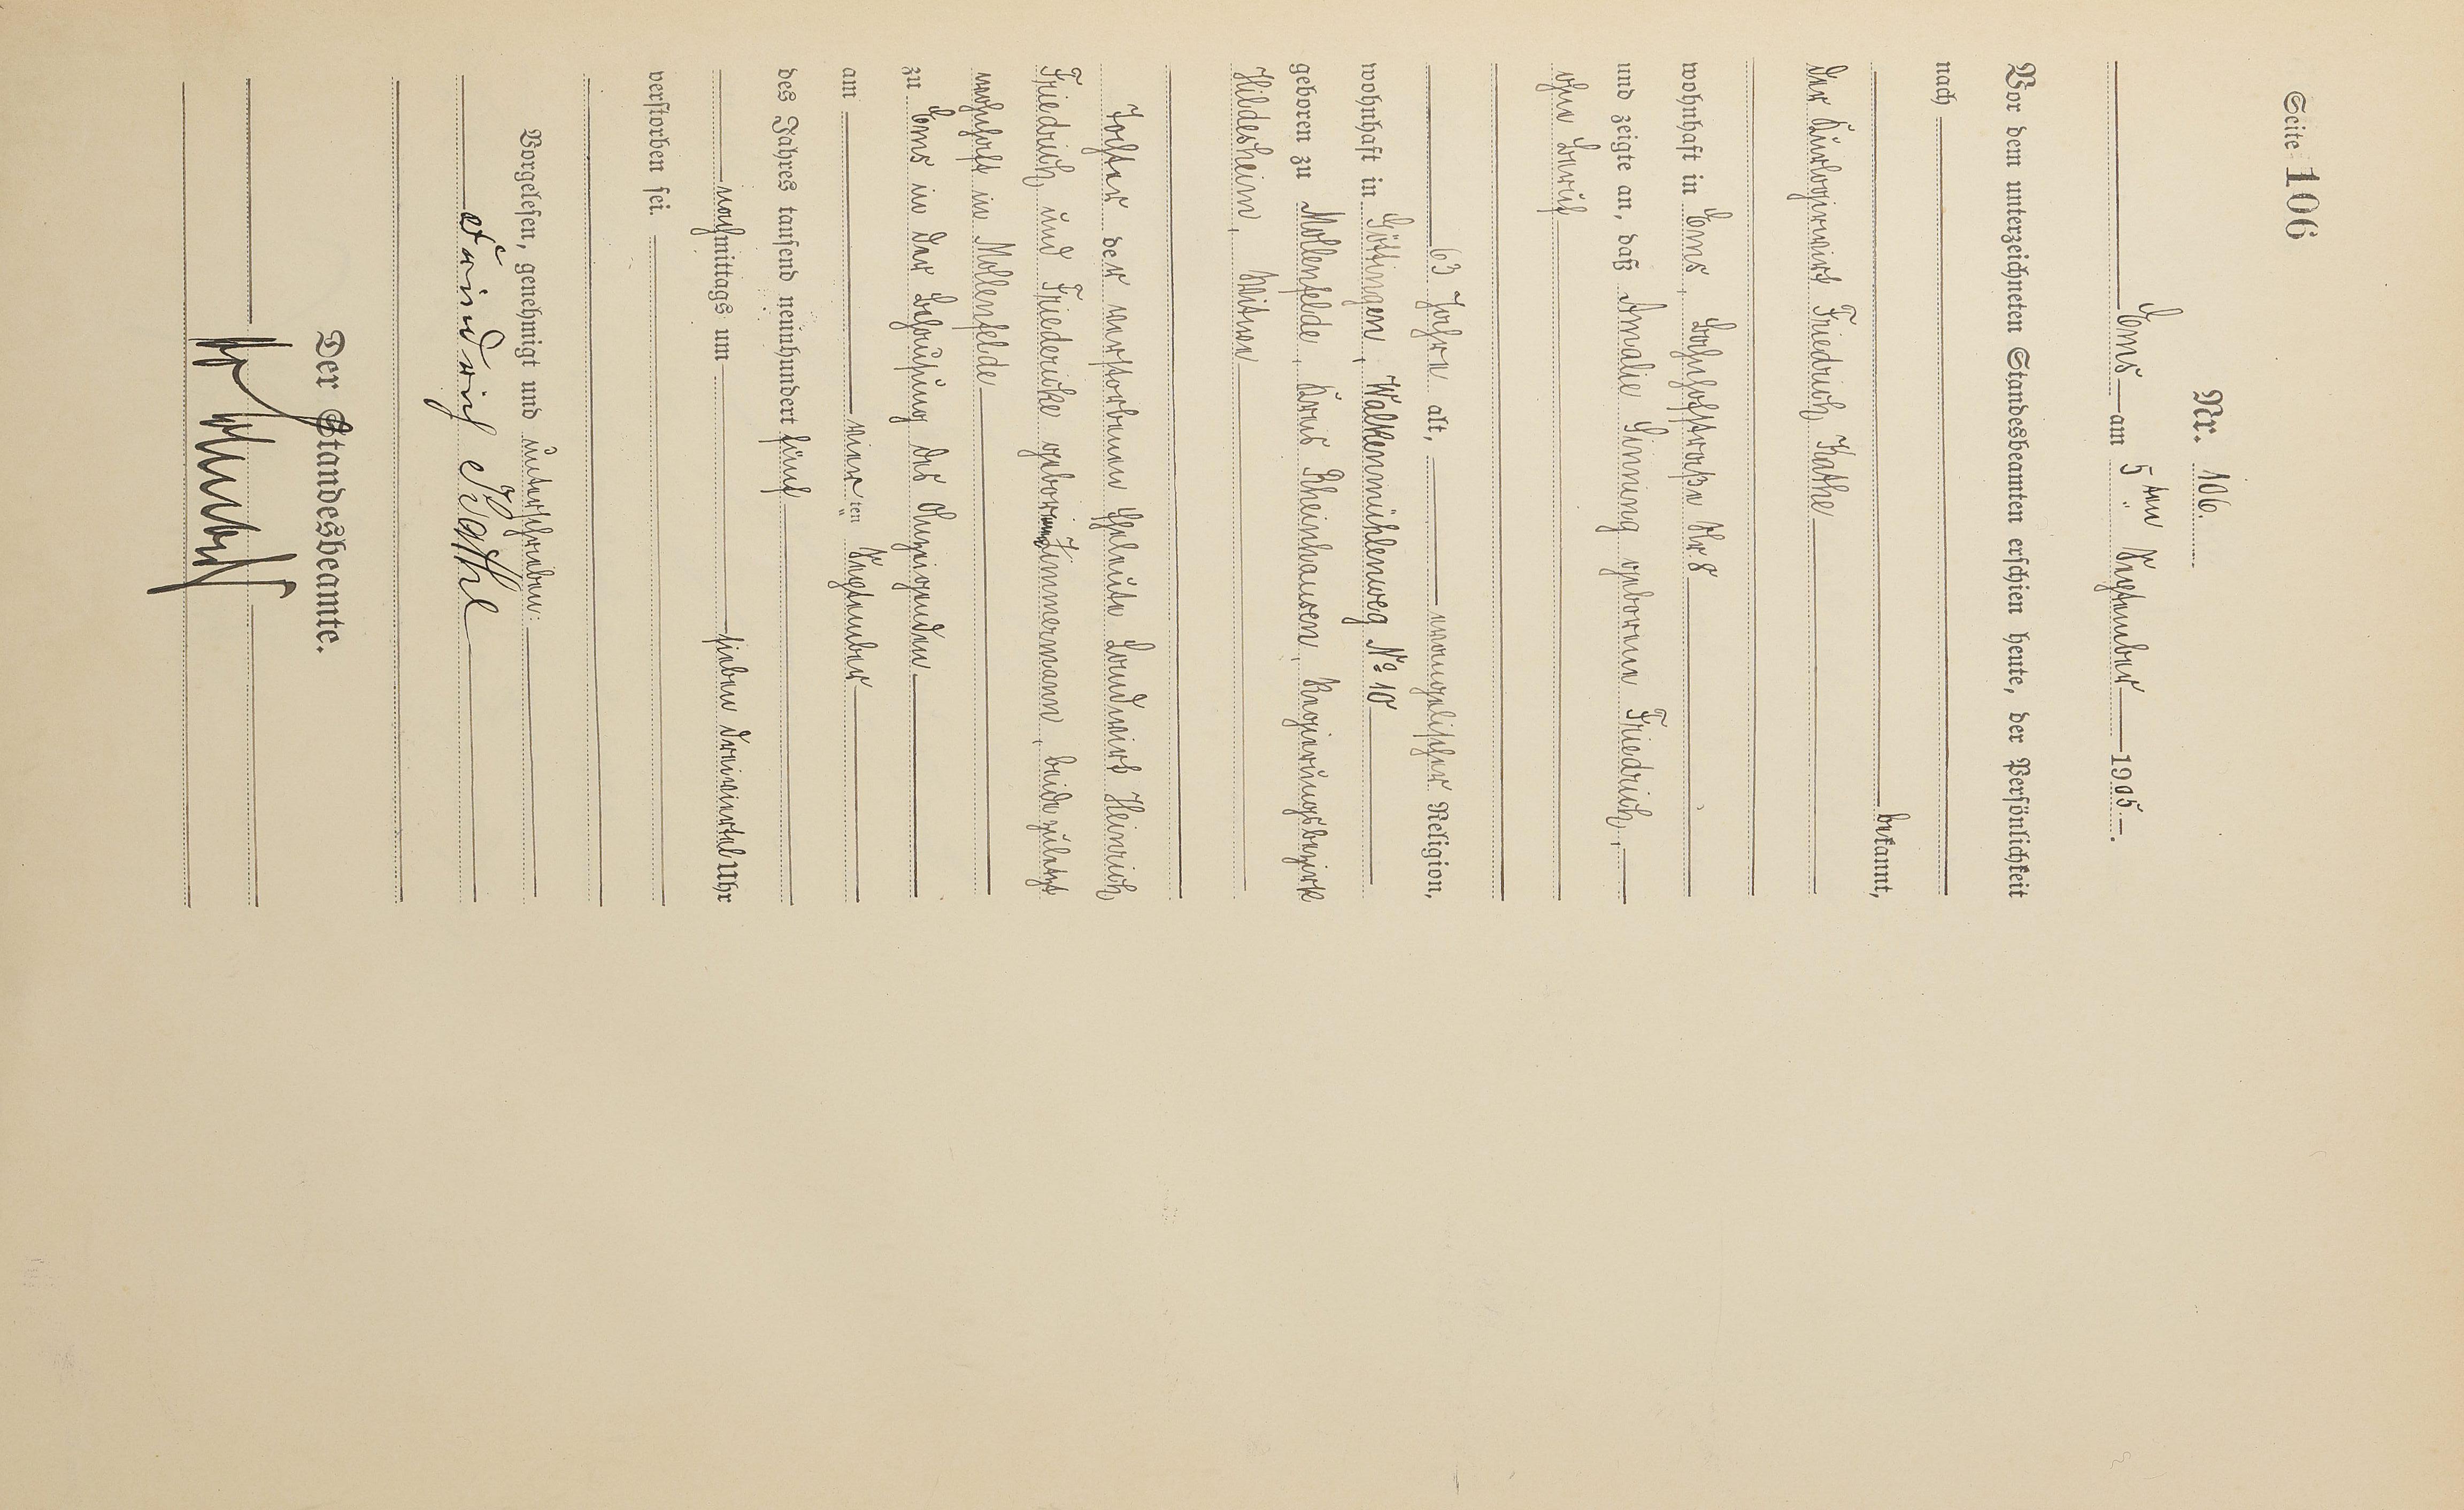 Seite 106
Nr. 106.
Ems am 5ten September 1905.
Vor dem unterzeichneten Standesbeamten erschien heute, der Persönlichkeit
nach
bekannt,
der Kurlogirwirt Friedrich Kathe
wohnhaft in Ems, Bahnhofstraße Nr. 8
und zeigte an, daß Amalie Sinning geborene Friedrich,
ohne Beruf
63 Jahre alt, evangelischer Religion,
wohnhaft in Göttingen, Walkenmühlenweg No 10
geboren zu Mollenfelde, Kreis Rheinhausen, Regierungsbezirk
Hildesheim, Witwe
Tochter der verstorbenen Eheleute Landwirt Heinrich
Friedrich und Friedericke geborene Zimmermann, beide zuletzt
wohnhaft in Mollenfelde
zu Ems in der Behausung des Anzeigenden
am vierten September
des Jahres tausend neunhundert fünf
nachmittags um sieben dreiviertel Uhr
verstorben sei.
Vorgelesen, genehmigt und unterschrieben:
Friedrich Kathe
Der Standesbeamte.